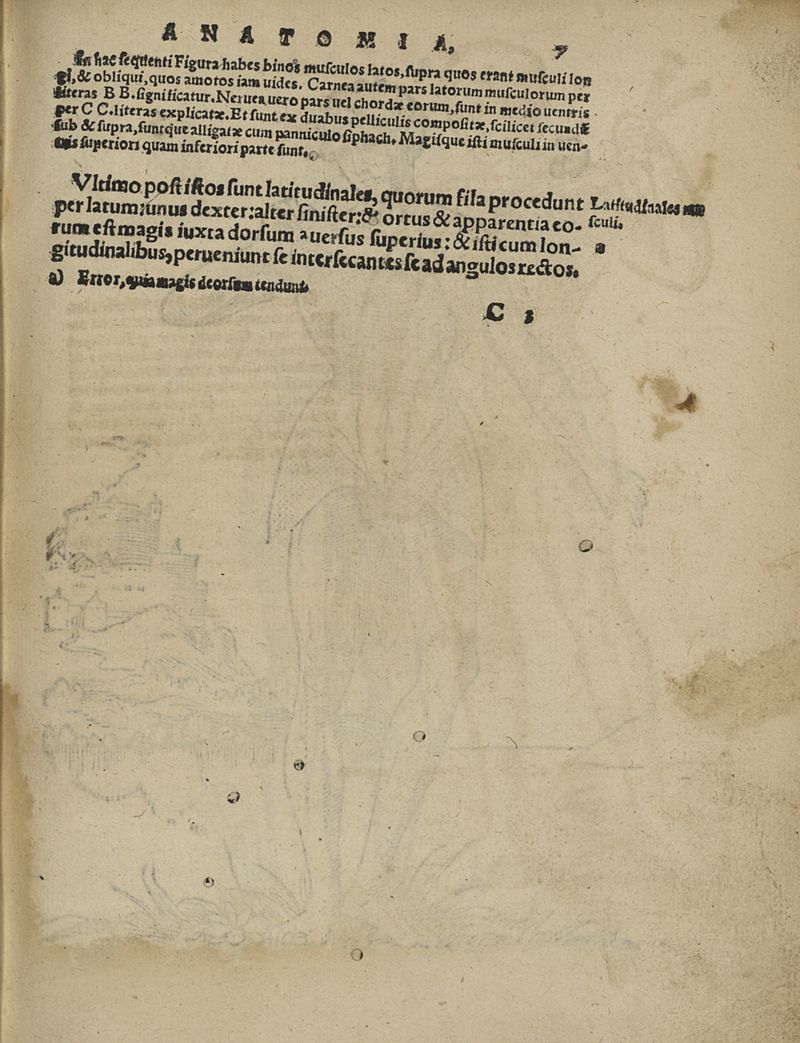 ANATOMIA, 7
In hac sequenti Figura habes binos musculos latos, supra quos erant musculi lon
gi, & obliqui, quos amotos iam uides. Carnea autem pars latorum musculorum per
literas B B. significatur. Neruea uero pars uel chordæ eorum, sunt in medio uentris
per C C. literas explicatæ. Et sunt ex duabus pelliculis compositæ, scilicet secundũ
sub & supra, suntque alligatæ cum panniculo siphach, Magisque isti musculi in uen-
tris superiori quam inferiori parte sunt.
Vltimo post istos sunt latitudinales, quorum fila procedunt
per latum: unus dexter: alter sinister: & ortus & apparentia eo-
rum est magis iuxta dorsum auersus superius: & isti cum lon-
gitudinalibus, perueniunt se intersecantes se ad angulos rectos.
Latitudinales mu
sculi,
a
a) Error, quia magis deorsum tendunt.
C 3